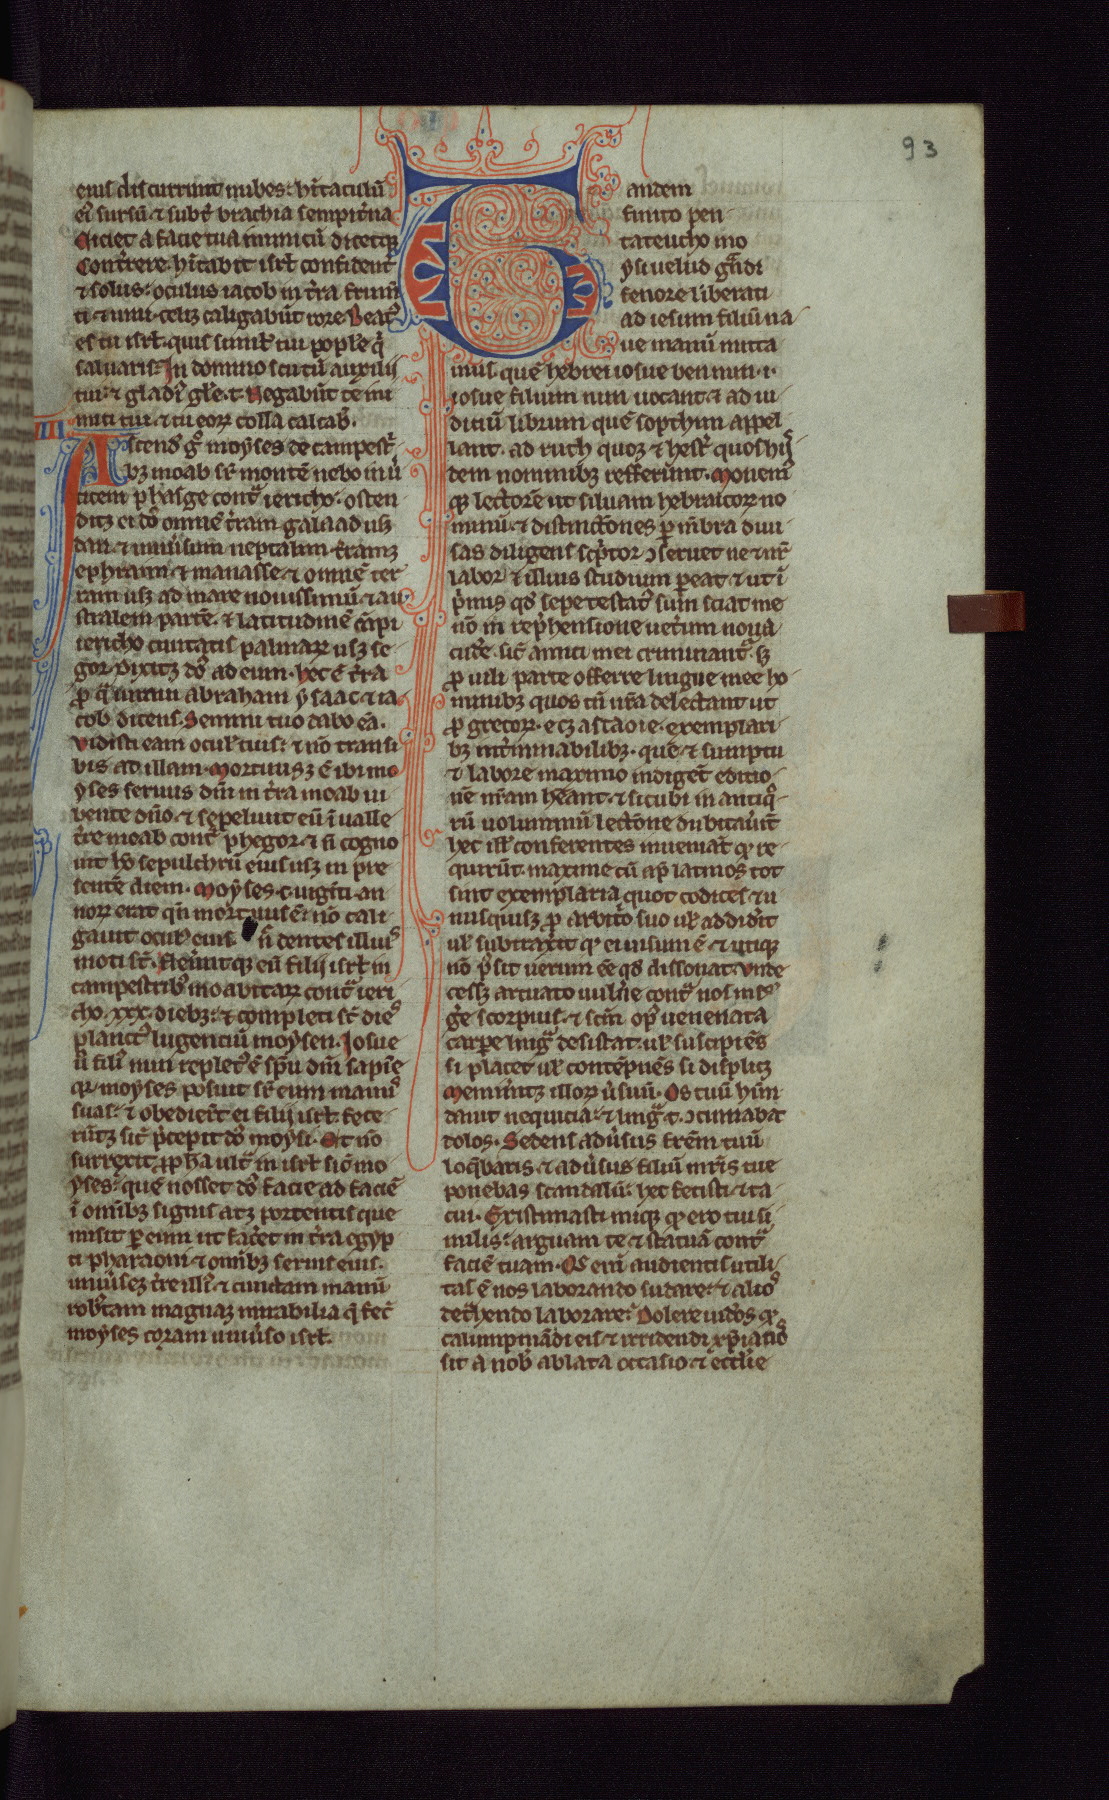 93
eius discurrunt nubes: hītaculū
eī sursū & subt̄ brachia sempit̄na
Eiciet a facie tua inimicū dicetqȝ
Conterere. hītabit isrł confident̄
& solus: oculus iacob in t̄ra frum̄
ti & uini. celiqȝ caligabūt rore Beat9
es tu isrł. quis similis tui pople q̄
saluaris: In domino scutū auxilii
tui: & gladi9 głe. t. Negabūt te ini
mici tui. & tu eoꝝ colla calcab̄.
Ascend̄ g̊ moyses de campestr̄
bȝ moab sr̄ montē nebo in ū
ticem phasge cont̄ iericho. osten
ditqȝ ei dō omnē t̄ram galaad usqȝ
dan. & uniūsum neptalim. t̄ramqȝ
ephraim & manasse. & omnē ter
ram usqȝ ad mare nouissimū & au
stralem partē. & latitudinē cāpi
iericho ciuitatis palmaꝝ usqȝ se
gor. Dixitqȝ dō ad eum. hec ē t̄ra
ꝓ q̄ iuraui abraham ysaac. & ia
cob dicens. Semini tuo dabo eā.
Vidisti eam oculis tuis: & nō transi
bis ad illam. Mortuusqȝ ē ibi mo
yses seruus dn̄i in t̄ra moab iu
bente dn̄o. & sepeliuit eū ī ualle
t̄re moab cont̄ phegor. & n̄ cogno
uit hō sepulchrū eius usqȝ in pre
sentē diem. Moyses. c. uiginti an
noꝝ erat qn̄ mortuus ē: nō cali
gauit ocul9 eius n̄ dentes illius
moti st̄. Fleūntqȝ eū filii isrł in
campestrib9 moabitaꝝ cont̄ ieri
cho. xxx. diebȝ: & completi st̄ dies
planct9 lugentiū moysen. Iosue
ū fili9 nun replet9 ē sp̄u dn̄i sapīe
qꝛ moyses posuit sr̄ eum manus
suas: & obedierūt ei filii isrł. fece
rūtqȝ sic̄ p̄cepit dō moysi. Et nō
surrexit ꝓpha ult̄ in isrł sic̄ mo
yses: quē nosset dō facie ad faciē
ī omībȝ signis atqȝ portentis que
misit ꝑ eum ut fac̄et in t̄ra egyp
ti pharaoni & omībȝ seruis eius.
uniūseqȝ t̄re illi9 & cunctam manū
robustam magnaqȝ mirabilia q̄ fec̄
moyses coram uniūso isrł.
Tandem
finito pen
tateucho mo
ysi uelud g̊ndi
fenore liberati
ad iesum filiū na
ue manū mitta
mus. quē hebrei iosue ben nun. i.
iosue filium nun uocant. & ad iu
dicū librum quē sopthim appel
lant. ad ruth quoqȝ & hesṫ quos hiis
dem nominibȝ refferunt. Monem9
qȝ lectorē ut siluam hebraicoꝝ no
minū & distinctiones ꝑ mēbra diui
sas diligens sc̄ptor ɔseruet ne & nr̄
labor & illius studium ꝑeat. & ut ī
p̄mis qd̄ sepe testat9 sum sciat me
nō in rep̄hensione ueterum noua
cudere. sic̄ amici mei criminant̄. sȝ
ꝓ uili parte offerre lingue mee ho
minibȝ quos tn̄ nr̄a delectant ut
ꝓ grecoꝝ exemplari
bȝ int̄minabilibȝ. que & sumptu
& labore maximo indigēt editio
nē nr̄am heant. & sicubi in antiq̄
rū uoluminū lectione dubitauīt
hec illis conferentes inueniat̄ qꝛ re
quirūt. maxime cū ap̄ latinos tot
sint exemplaria quot codices. & u
nusquisqȝ ꝓ arbit̄o suo uł addidit
uł subtraxit qꝛ ei uisum ē & utiqȝ
nō p̄sit uerum ēe qd̄ dissonat. Vnde
cessȝ arcuato uulnēre cont̄ nos in su
ge scorpius. & sc̄m op̄ uenenata
carꝑe ling̊ desistat. uł suscipiēs
si placet uł contēpnēs si displicȝ
Memin̄itqȝ illoꝝ ūsuū. Os tuū hūn
dauit nequicia: & ling̊. t. ɔcinnabat
dolos. Sedens adūsus frēm tuū
loq̄baris. & adūsus filiū mr̄is tue
ponebas scandalū: hec fecisti. & ta
cui. Existimasti iniqȝ qꝛ ero tui si
milis: arguam te & statuā cont̄
faciē tuam. Que enī audientis utili
tas ē nos laborando sudare: & alios
det̄hendo laborare: Dolere iudeos qꝛ
calumpniādi eis & irridendi xp̄ianos
sit a nob9 ablata occasio. & ecclīe